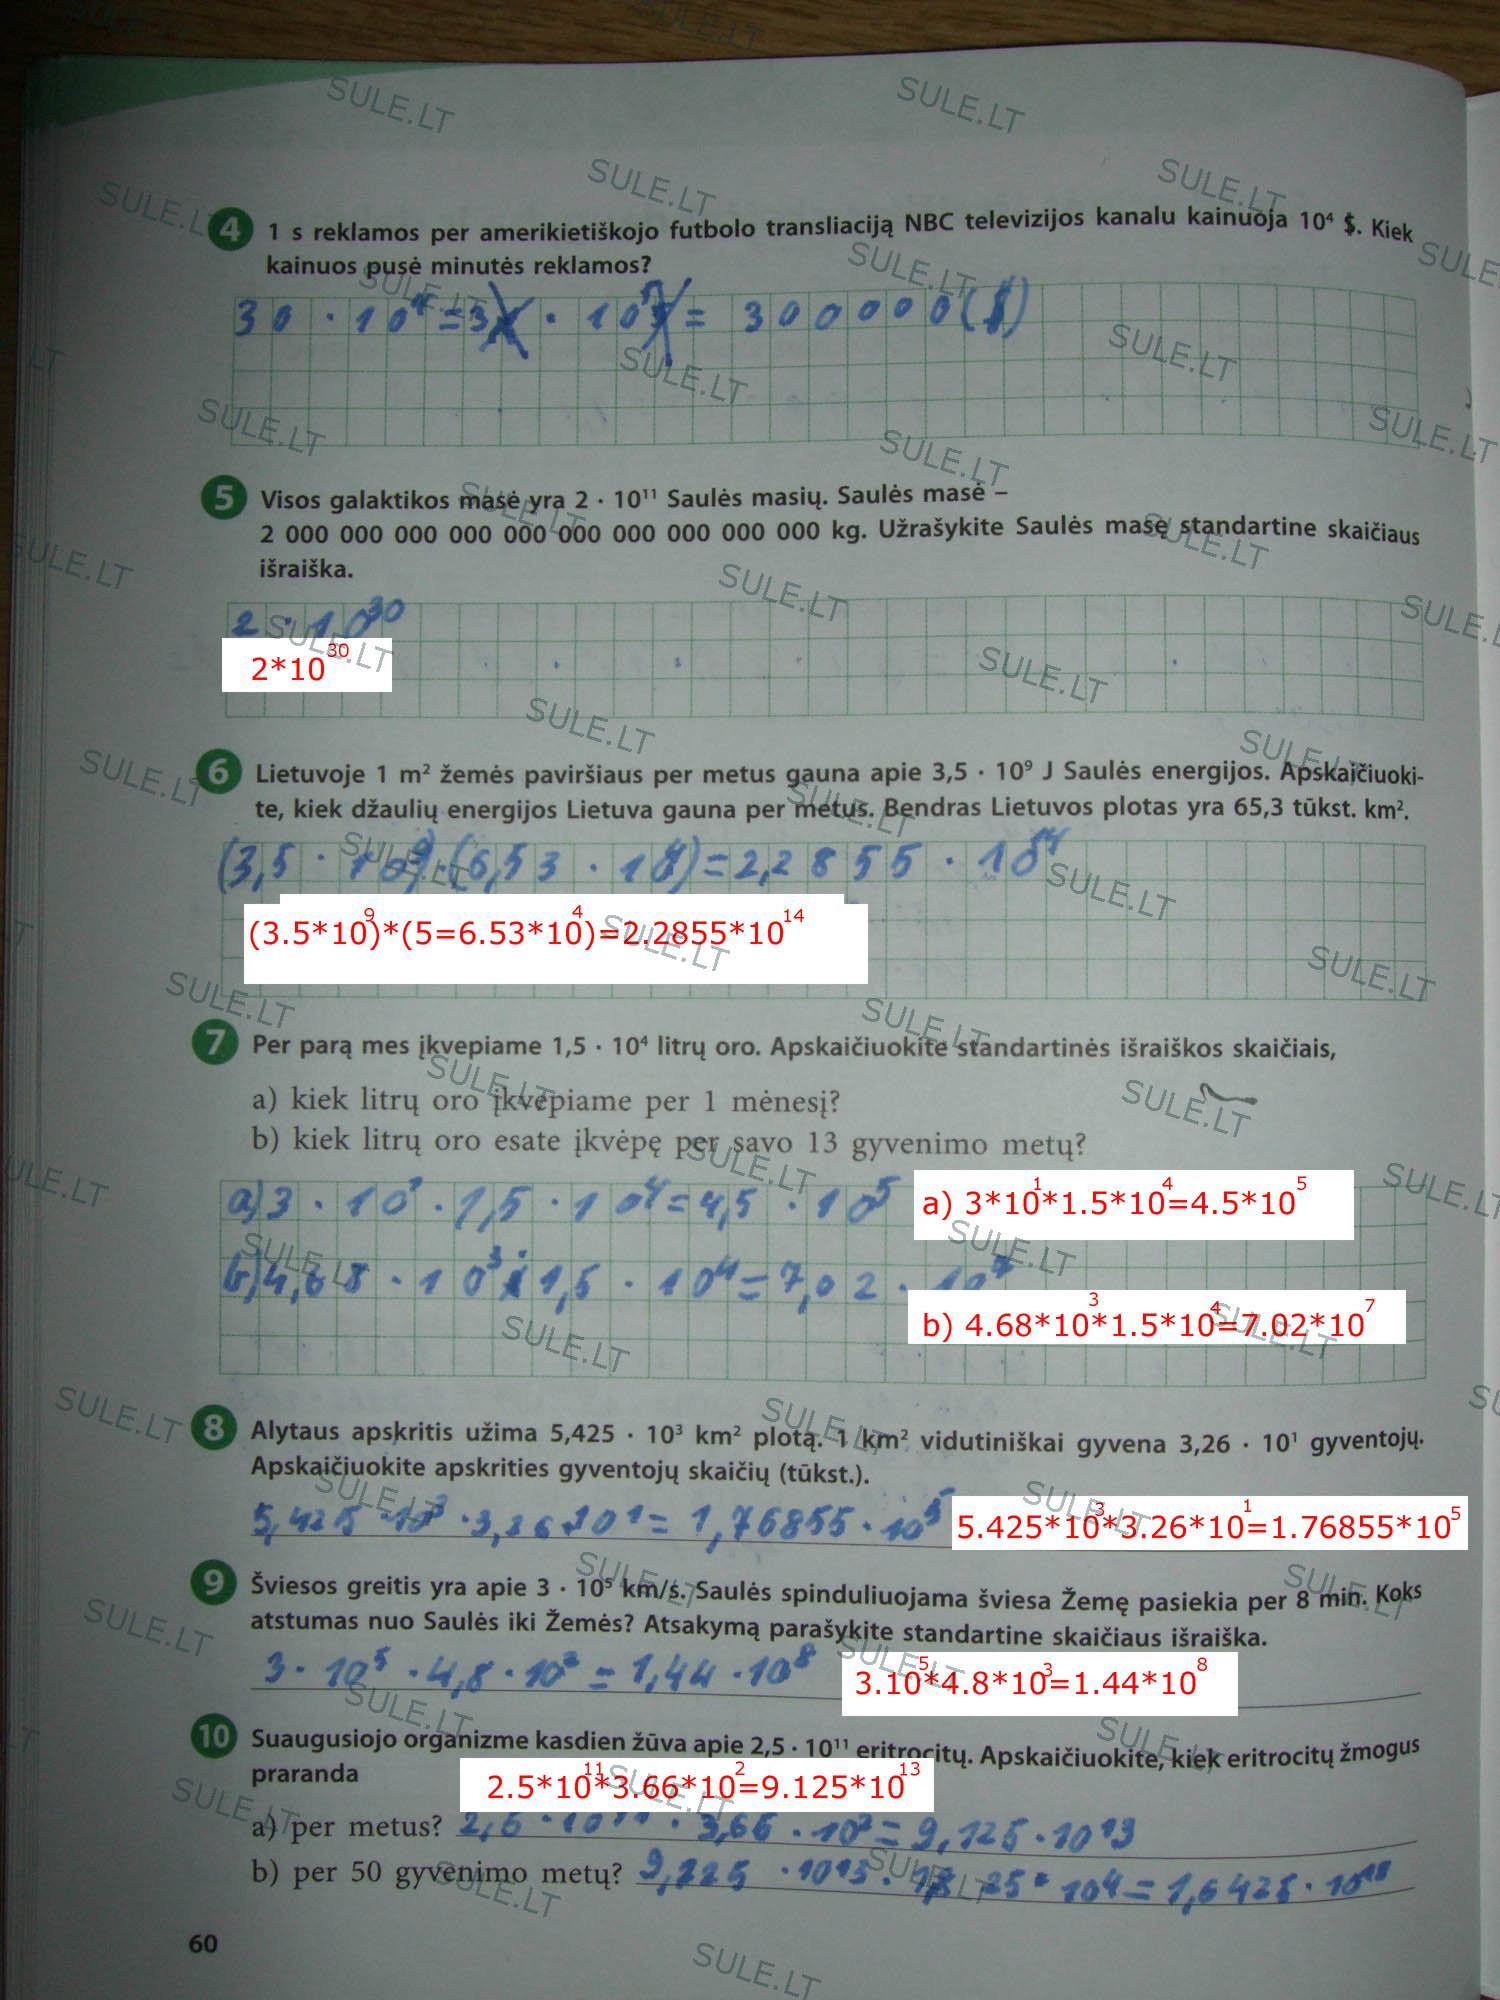 4 1 s reklamos per amerikietiškojo futbolo transliaciją NBC televizijos kanalu kainuoja 10⁴ $. Kiek
kainuos pusė minutės reklamos?
30 · 10⁴ = 3 · 10⁵ = 300000 ($)
5 Visos galaktikos masė yra 2 · 10¹¹ Saulės masių. Saulės masė –
2 000 000 000 000 000 000 000 000 000 000 kg. Užrašykite Saulės masę standartine skaičiaus
išraiška.
2 · 10³⁰
2*10³⁰
6 Lietuvoje 1 m² žemės paviršiaus per metus gauna apie 3,5 · 10⁹ J Saulės energijos. Apskaičiuoki-
te, kiek džaulių energijos Lietuva gauna per metus. Bendras Lietuvos plotas yra 65,3 tūkst. km².
(3,5 · 10⁹)·(6,53 · 10⁴)=2,2855 · 10¹⁴
(3.5*10⁹)*(5=6.53*10⁴)=2.2855*10¹⁴
7 Per parą mes įkvepiame 1,5 · 10⁴ litrų oro. Apskaičiuokite standartinės išraiškos skaičiais,
a) kiek litrų oro įkvepiame per 1 mėnesį?
b) kiek litrų oro esate įkvėpę per savo 13 gyvenimo metų?
a) 3 · 10¹ · 1,5 · 10⁴ = 4,5 · 10⁵
a) 3*10¹*1.5*10⁴=4.5*10⁵
b) 4,68 · 10³ · 1,5 · 10⁴ = 7,02 · 10⁷
b) 4.68*10³*1.5*10⁴=7.02*10⁷
8 Alytaus apskritis užima 5,425 · 10³ km² plotą. 1 km² vidutiniškai gyvena 3,26 · 10¹ gyventojų.
Apskaičiuokite apskrities gyventojų skaičių (tūkst.).
5,425 · 10³ · 3,26 · 10¹ = 1,76855 · 10⁵
5.425*10³*3.26*10¹=1.76855*10⁵
9 Šviesos greitis yra apie 3 · 10⁵ km/s. Saulės spinduliuojama šviesa Žemę pasiekia per 8 min. Koks
atstumas nuo Saulės iki Žemės? Atsakymą parašykite standartine skaičiaus išraiška.
3 · 10⁵ · 4,8 · 10² = 1,44 · 10⁸
3.10⁵*4.8*10³=1.44*10⁸
10 Suaugusiojo organizme kasdien žūva apie 2,5 · 10¹¹ eritrocitų. Apskaičiuokite, kiek eritrocitų žmogus
praranda
2.5*10¹¹*3.66*10²=9.125*10¹³
a) per metus? 2,5 · 10¹¹ · 3,66 · 10² = 9,125 · 10¹³
b) per 50 gyvenimo metų?
60
SULE.LT